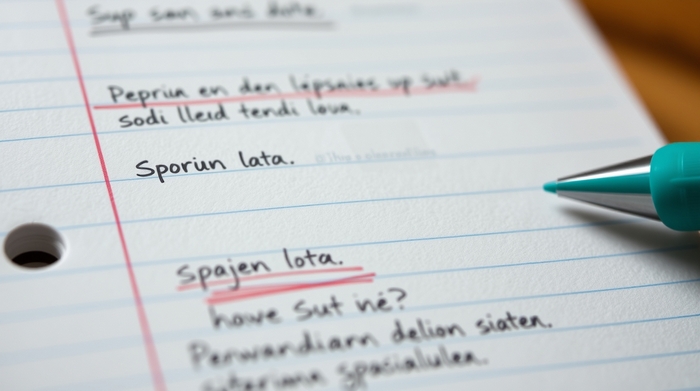 Sup san ans dote.
Pepriun en den lépsaies up sut.
sodi lleid tendi loua.
Sporiun lata.
Spajen lota.
howe sut iné?
Perwandiarn delion siaten.
spasialulea.